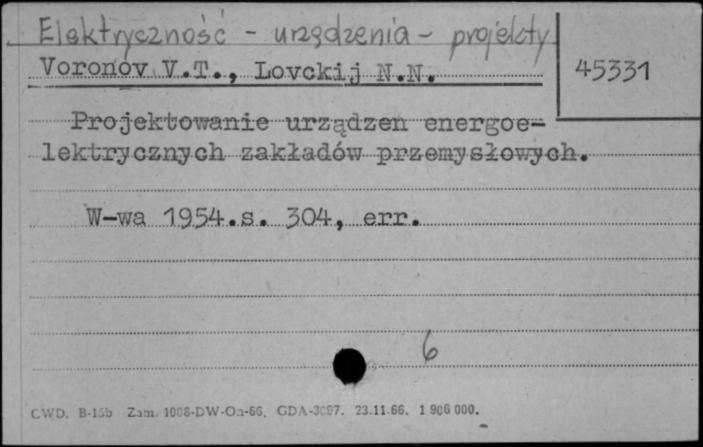 Elektryczność - urządzenia - projekty
Voronov V.T., Lovckij N.N.
45331
Projektowanie urządzeń energoe-
lektrycznych zakładów przemysłowych.
W-wa 1954.s. 304, err.
6
CWD. B-15b Zam. 1008-DW-Oa-66. GDA-3097. 23.11.66. 1 906 000.